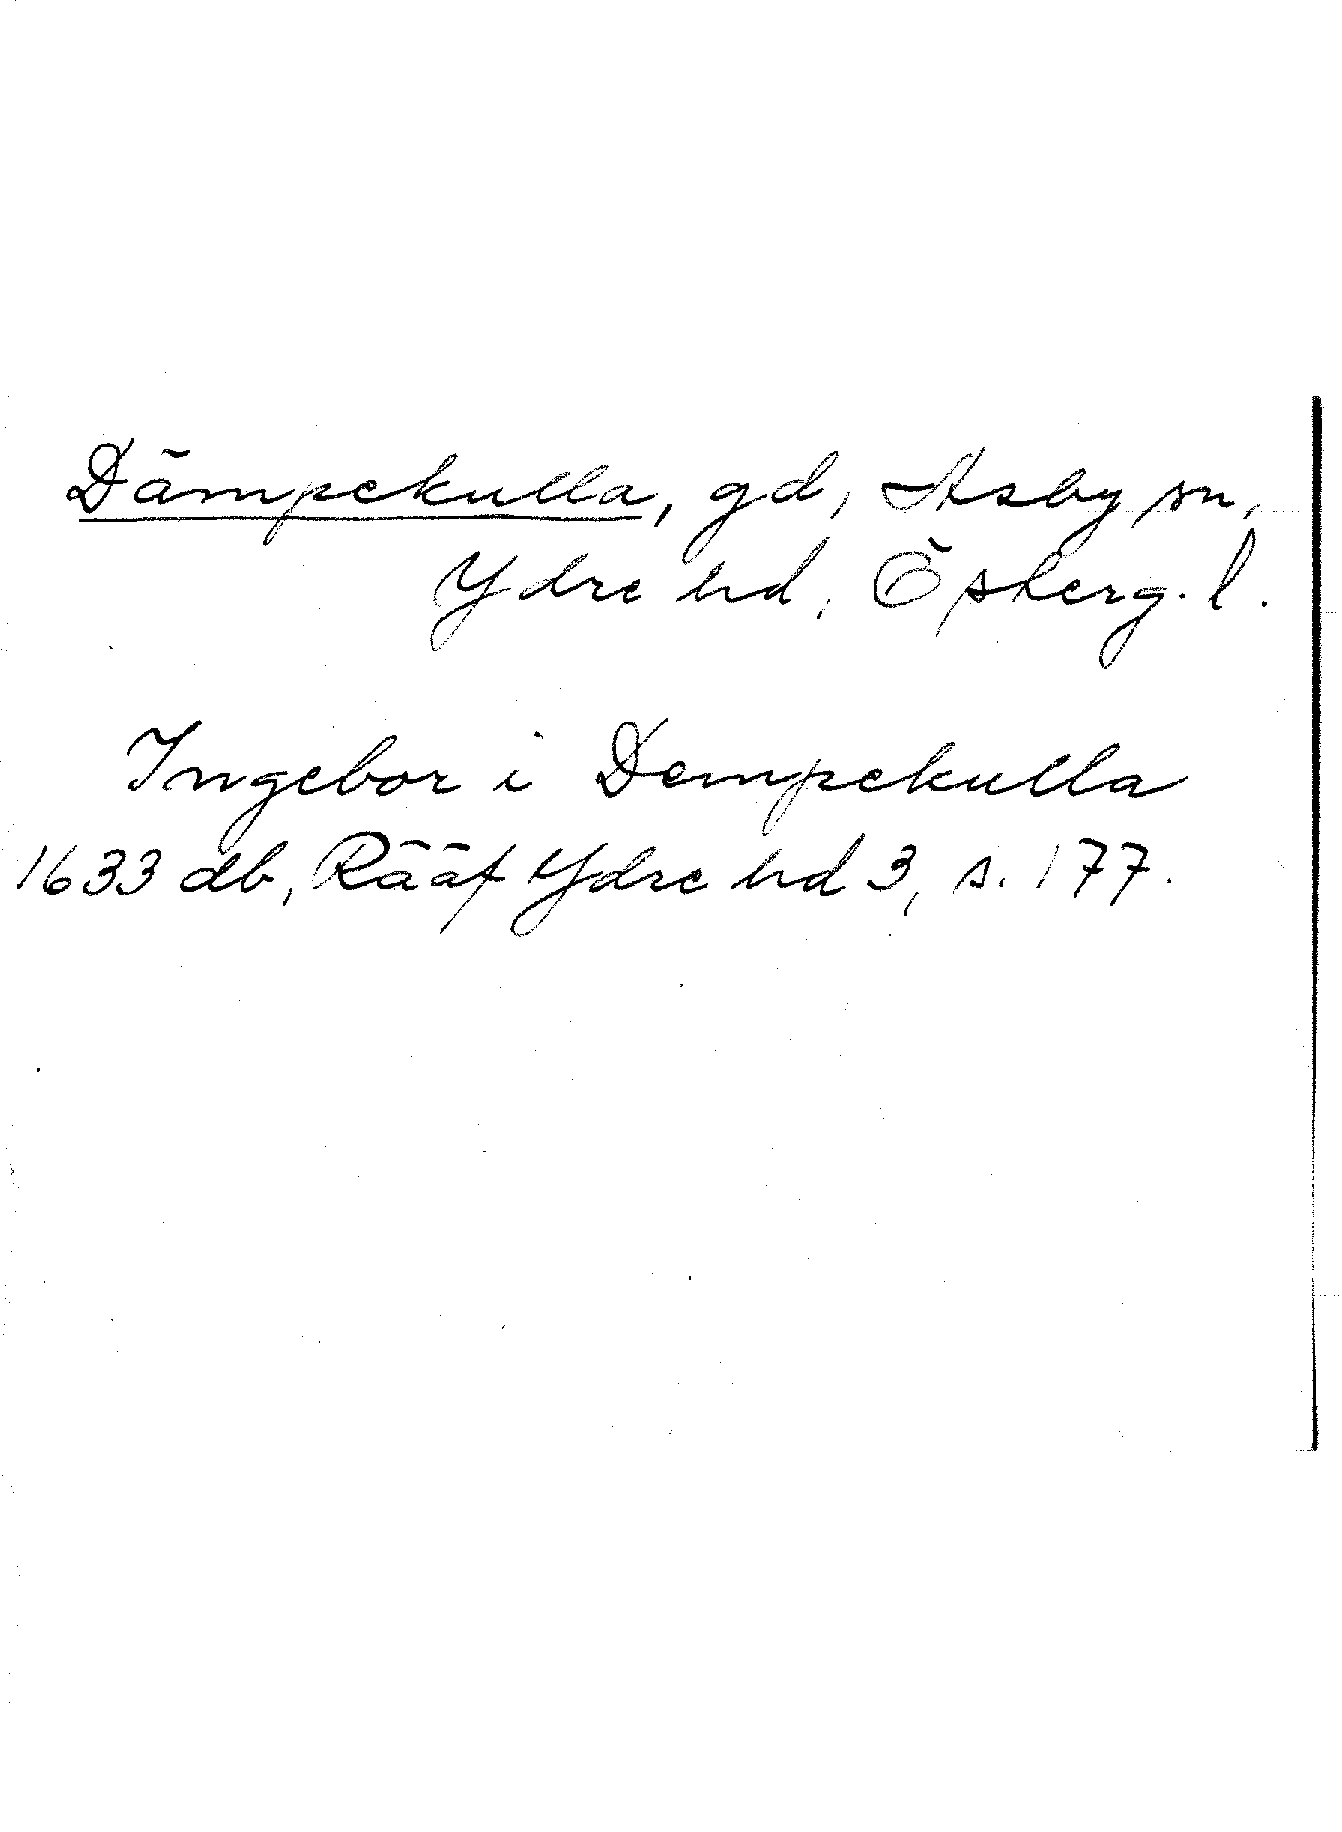 Dämpekulla, gd, Asby sn,
Ydre hd, Österg. l.
Ingebor i Dempekulla
1633 db, Rääf Ydre hd 3, s. 177.